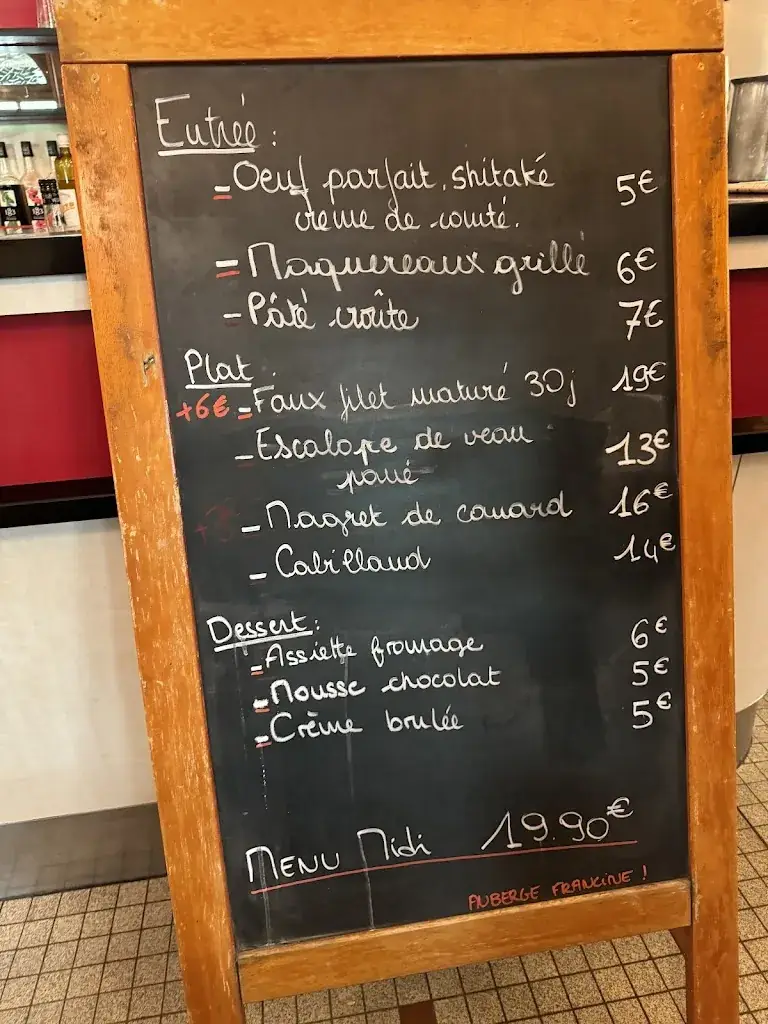 Entrée :
- Oeuf parfait, shitaké 5€
crème de comté.
- Maquereaux grillé 6€
- Pâté croûte 7€
Plat
+6€ - Faux filet maturé 30j 19€
- Escalope de veau 13€
pané
- Magret de canard 16€
- Cabillaud 14€
Dessert :
- Assiette fromage 6€
- Mousse chocolat 5€
- Crème brulée 5€
MENU Midi 19.90€
AUBERGE FRANCINE !